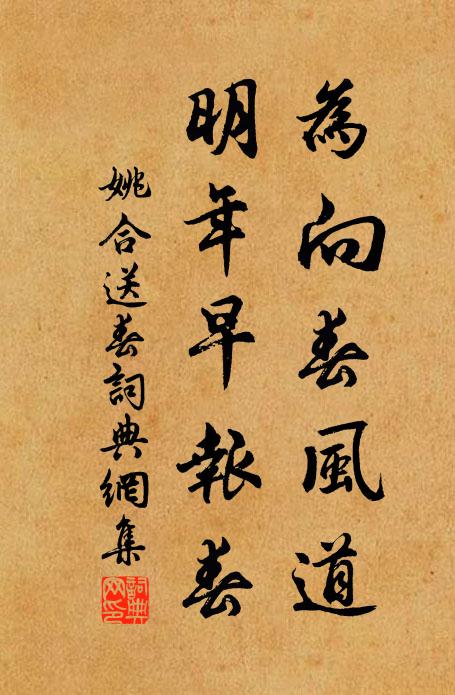 為向春風道
明年早報春
姚合送春詞典網集
詞典網印